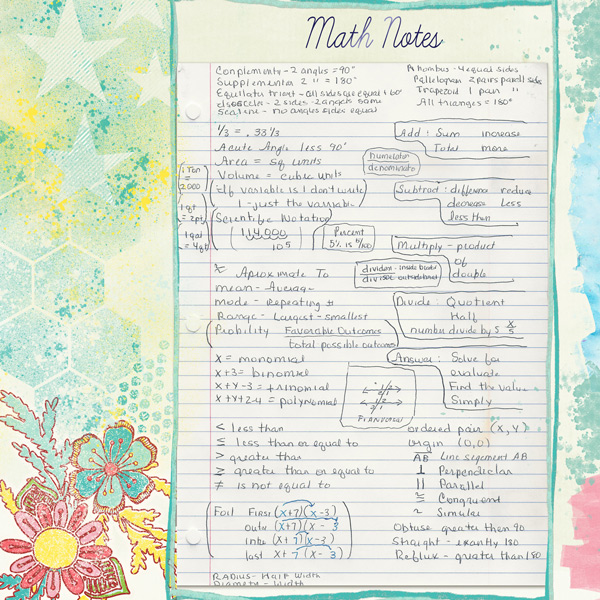 Math Notes
Complements - 2 angles = 90°
Supplementa 2 " = 180°
Equillate triant - all sides are equal + 60°
Isosceles - 2 sides - 2 angels same
Scalene - no angles sides equal
Rhombus - 4 equal sides
Pallelogram 2 pairs parell sides
Trapezoid 1 pair "
All triangles = 180°
1/3 = .33 1/3
Acute Angle less 90°
Area = sq units
Volume = cubic units
If variable is 1 don't write
1 - just the variable
Scientific Notation
114,000
10 5
1 Ton
=
2,000
1 qt
= 2pt
1 gal
= 4qt
numerator
denominate
Percent
5% is 5/100
Add: Sum increase
Total more
Subtract: difference reduce
decrease less
less than
Multiply - product
of
double
dividen - inside
divisor outside
≈ Aproximate To
mean - Average
mode - Repeating #
Range - Largest - smallest
Probility Favorable Outcomes
total possible outcomes
Divide: Quotient
Half
number divide by 5 x/5
x = monomial
x+3 = binomial
x+y-3 = trinomial
x+y+2-4 = polynomial
Answer: Solve for
evaluate
Find the value
Simply
< less than
≤ less than or equal to
> greater than
≥ greater than or equal to
≠ is not equal to
ordered pair (x, y)
orgin (0,0)
AB Line segement AB
⊥ Perpendicular
|| Parallel
≅ Congruent
~ Similar
Foil First (x+7)(x-3)
outer (x+7)(x-3
inner (x+7)(x-3)
last x+7 (x-3)
Obtuse greater then 90
Straight - exantly 180
Reflux - greater than 180
Radius - Half Width
Diameter - Width